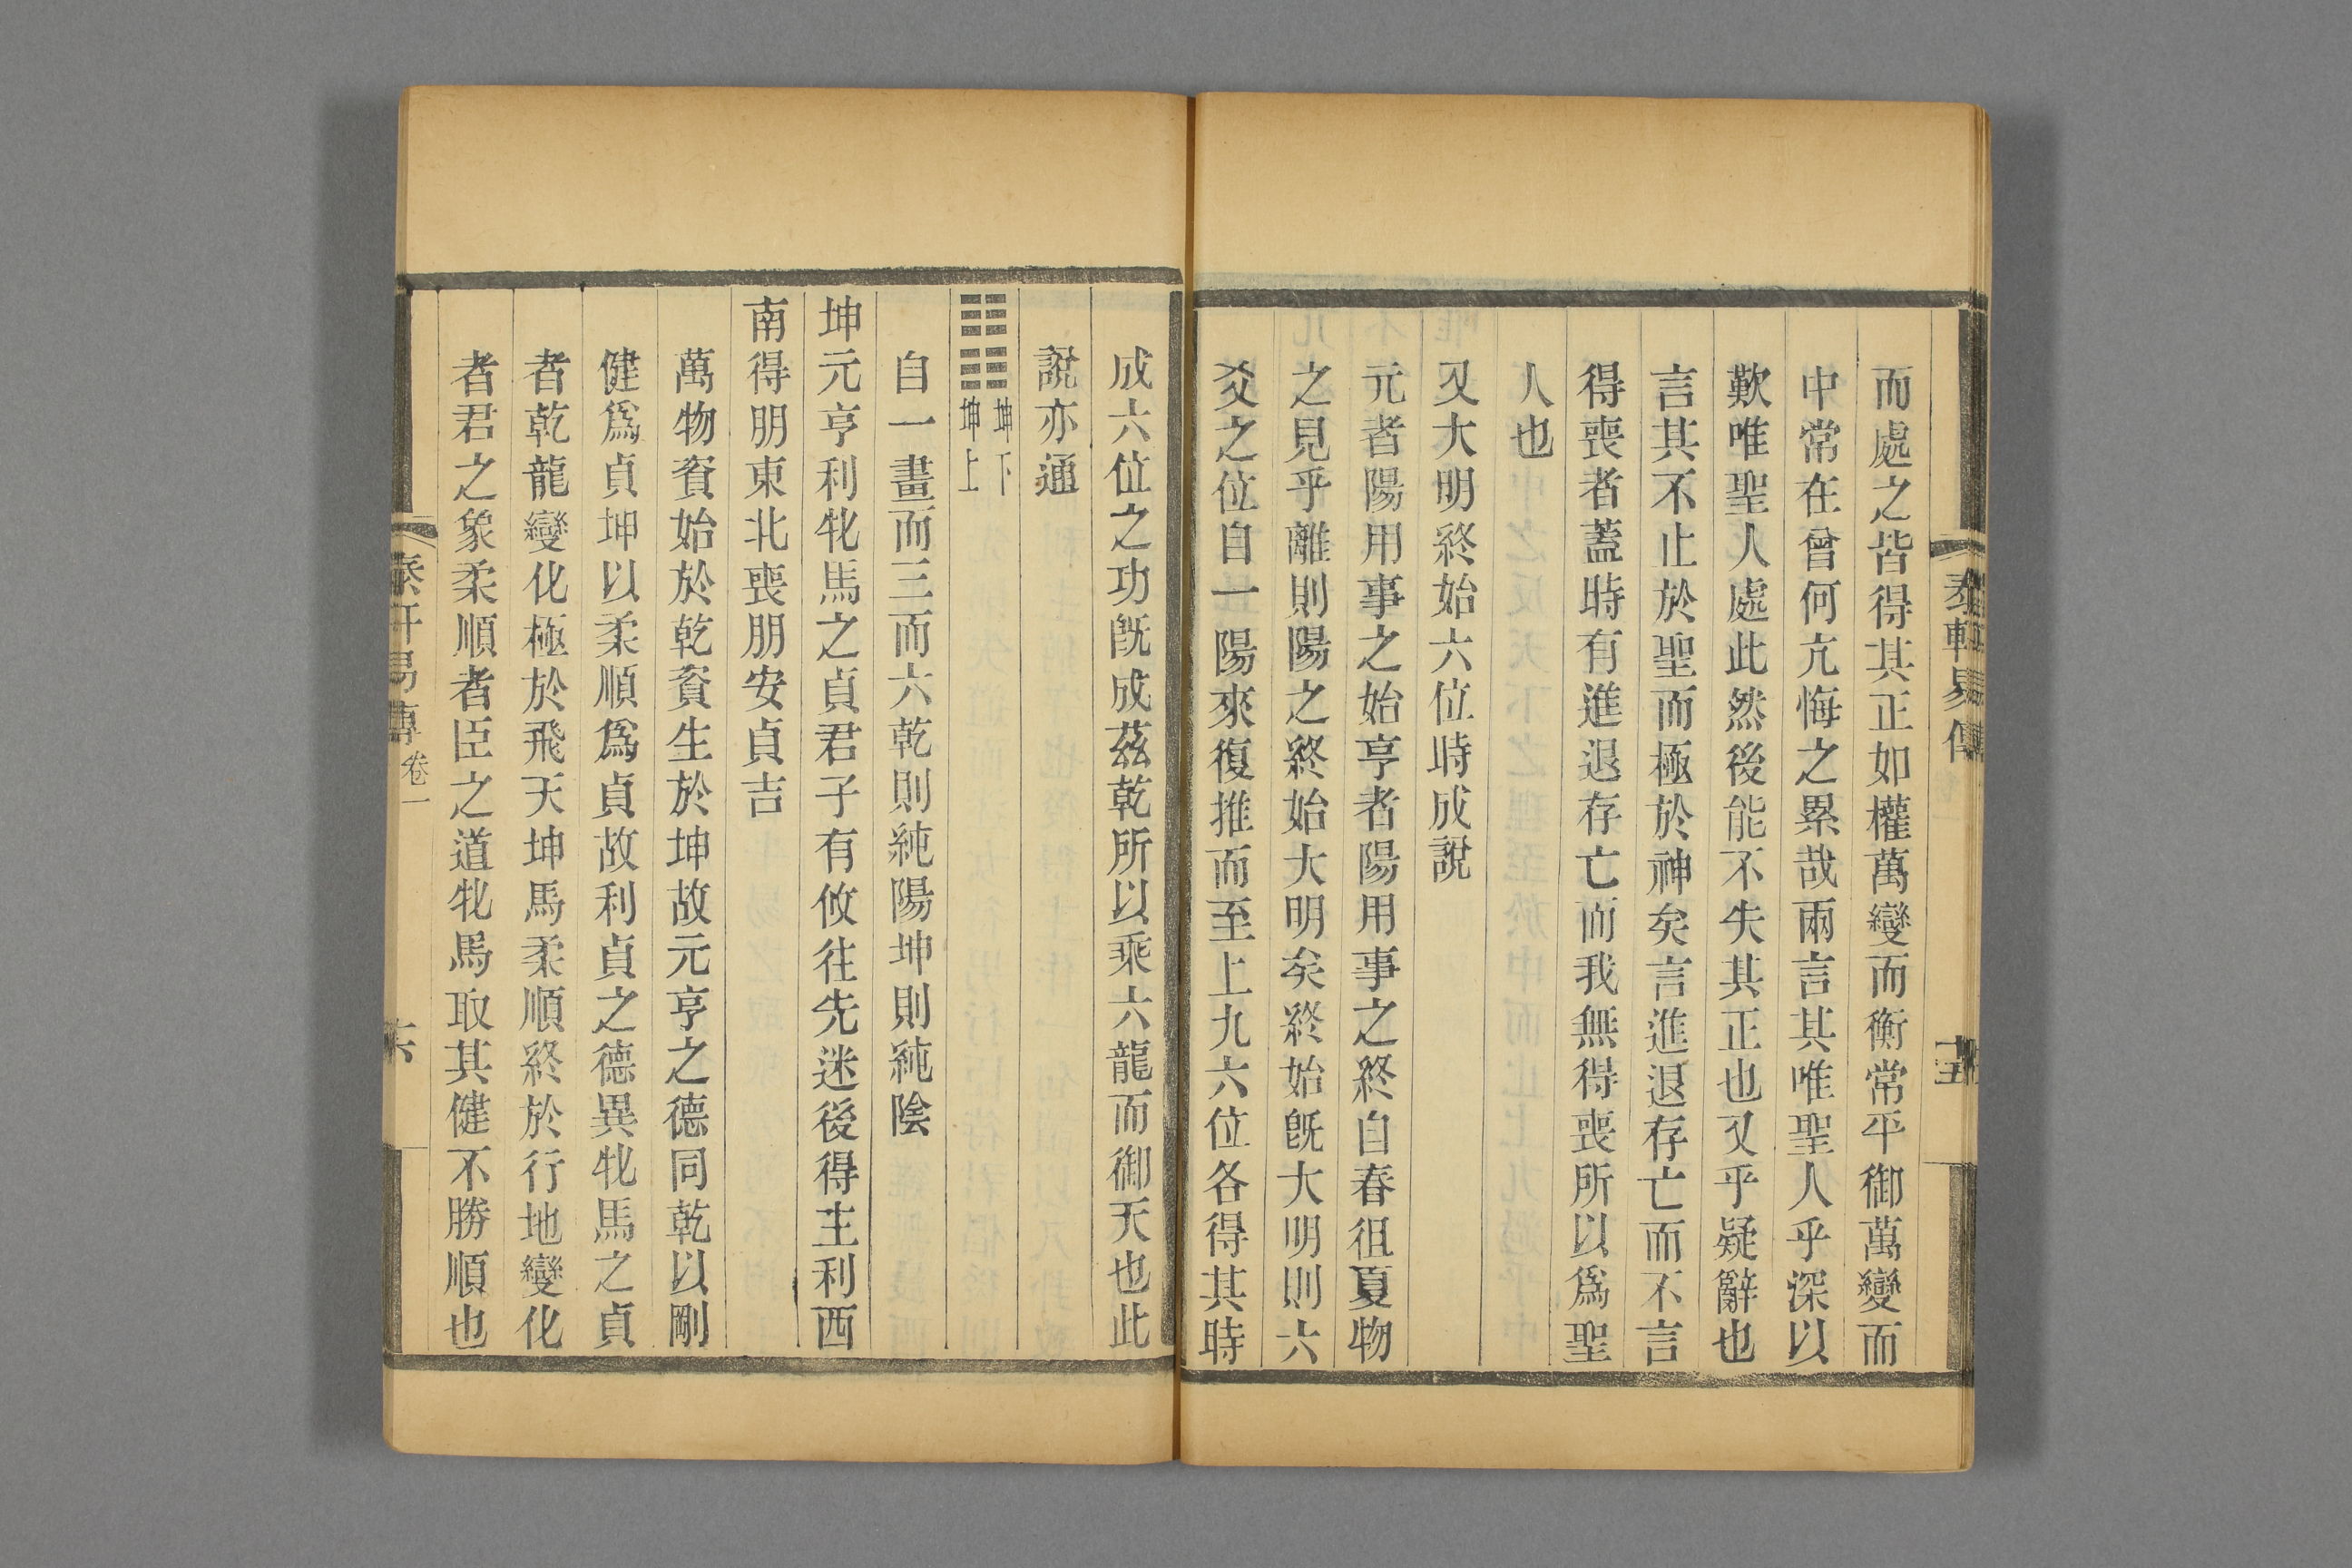 泰軒易傳
十五
而處之皆得其正如權萬變而衡常平御萬變而
中常在曾何亢悔之累哉兩言其唯聖人乎深以
歎唯聖人處此然後能不失其正也又乎疑辭也
言其不止於聖而極於神矣言進退存亡而不言
得喪者蓋時有進退存亡而我無得喪所以爲聖
人也
又大明終始六位時成說
元者陽用事之始亨者陽用事之終自春徂夏物
之見乎離則陽之終始大明矣終始旣大明則六
爻之位自一陽來復推而至上九六位各得其時
成六位之功旣成茲乾所以乘六龍而御天也此
說亦通
䷁坤下坤上
自一畫而三而六乾則純陽坤則純陰
坤元亨利牝馬之貞君子有攸往先迷後得主利西
南得朋東北喪朋安貞吉
萬物資始於乾資生於坤故元亨之德同乾以剛
健爲貞坤以柔順爲貞故利貞之德異牝馬之貞
者乾龍變化極於飛天坤馬柔順終於行地變化
者君之象柔順者臣之道牝馬取其健不勝順也
泰軒易傳卷一
十六